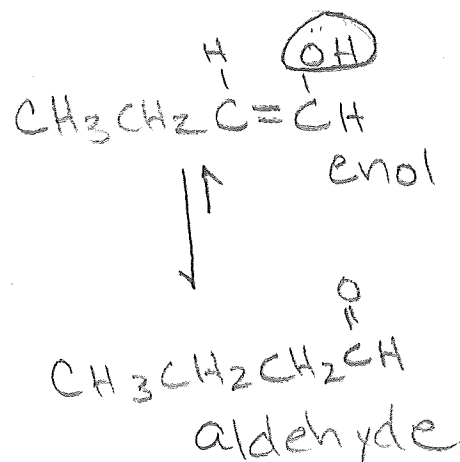 H ÖH
CH3CH2C=CH
enol
O
CH3CH2CH2CH
aldehyde